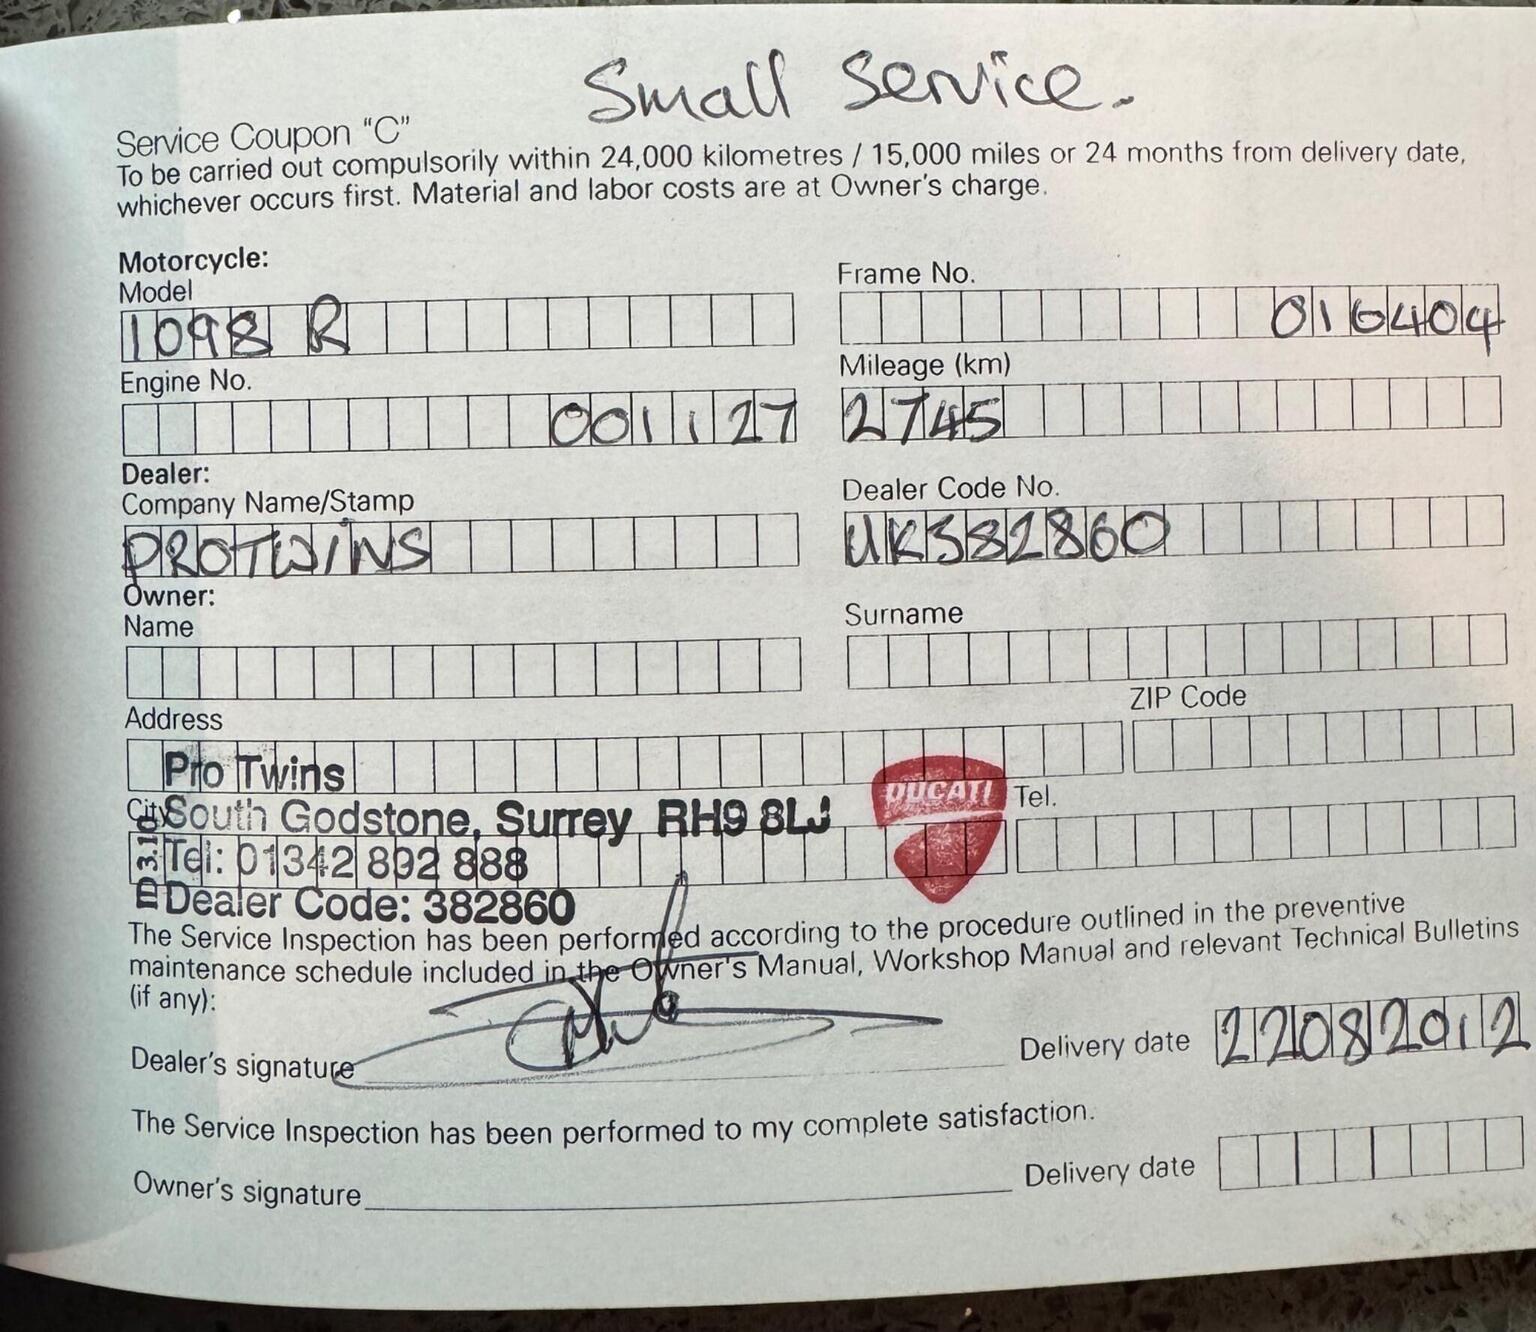 Small Service.
Service Coupon "C"
To be carried out compulsorily within 24,000 kilometres / 15,000 miles or 24 months from delivery date,
whichever occurs first. Material and labor costs are at Owner's charge.
Motorcycle:
Model
1098 R
Frame No.
016404
Engine No.
001127
Mileage (km)
2745
Dealer:
Company Name/Stamp
PROTWINS
Dealer Code No.
UK382860
Owner:
Name
Surname
Address
ZIP Code
Pro Twins
DUCATI
City
South Godstone, Surrey RH9 8LJ
Tel.
Tel: 01342 892 888
Dealer Code: 382860
The Service Inspection has been performed according to the procedure outlined in the preventive
maintenance schedule included in the Owner's Manual, Workshop Manual and relevant Technical Bulletins
(if any):
Dealer's signature
Delivery date 22082012
The Service Inspection has been performed to my complete satisfaction.
Owner's signature
Delivery date